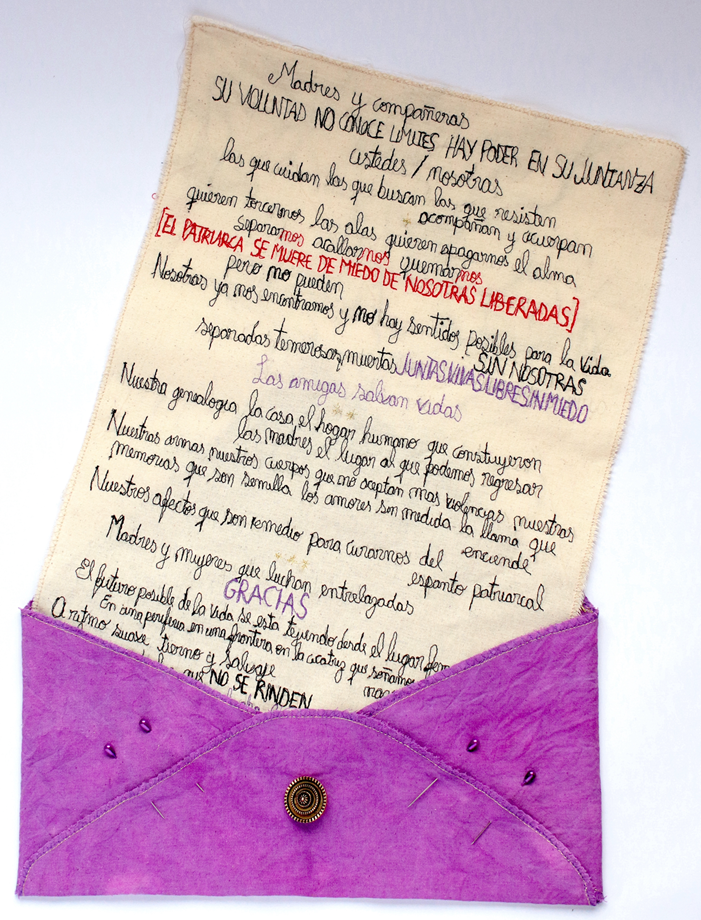 Madres y compañeras
SU VOLUNTAD NO CONOCE LIMITES HAY PODER EN SU JUNTANZA
ustedes / nosotras
las que cuidan las que buscan las que resisten
acompañan y acuerpan
quieren torcernos las alas quieren apagarnos el alma
separarnos acallarnos quemarnos
[EL PATRIARCA SE MUERE DE MIEDO DE NOSOTRAS LIBERADAS]
pero no pueden
Nosotras ya nos encontramos y no hay sentidos posibles para la vida
SIN NOSOTRAS
separadas temerosas muertas JUNTAS VIVAS LIBRES SIN MIEDO
Las amigas salvan vidas
Nuestra genealogia la casa, el hogar humano que construyeron
las madres el lugar al que podemos regresar
Nuestras armas nuestros cuerpos que no aceptan mas violencias nuestras
memorias que son semilla los amores sin medida la llama que
enciende
Nuestros afectos que son remedio para curarnos del
espanto patriarcal
Madres y mujeres que luchan entrelazadas
GRACIAS
El futuro posible de la vida se esta tejiendo desde el lugar
En una periferia, en una frontera, en la cicatriz que soñamos
A ritmo suave tierno y salvaje
que NO SE RINDEN